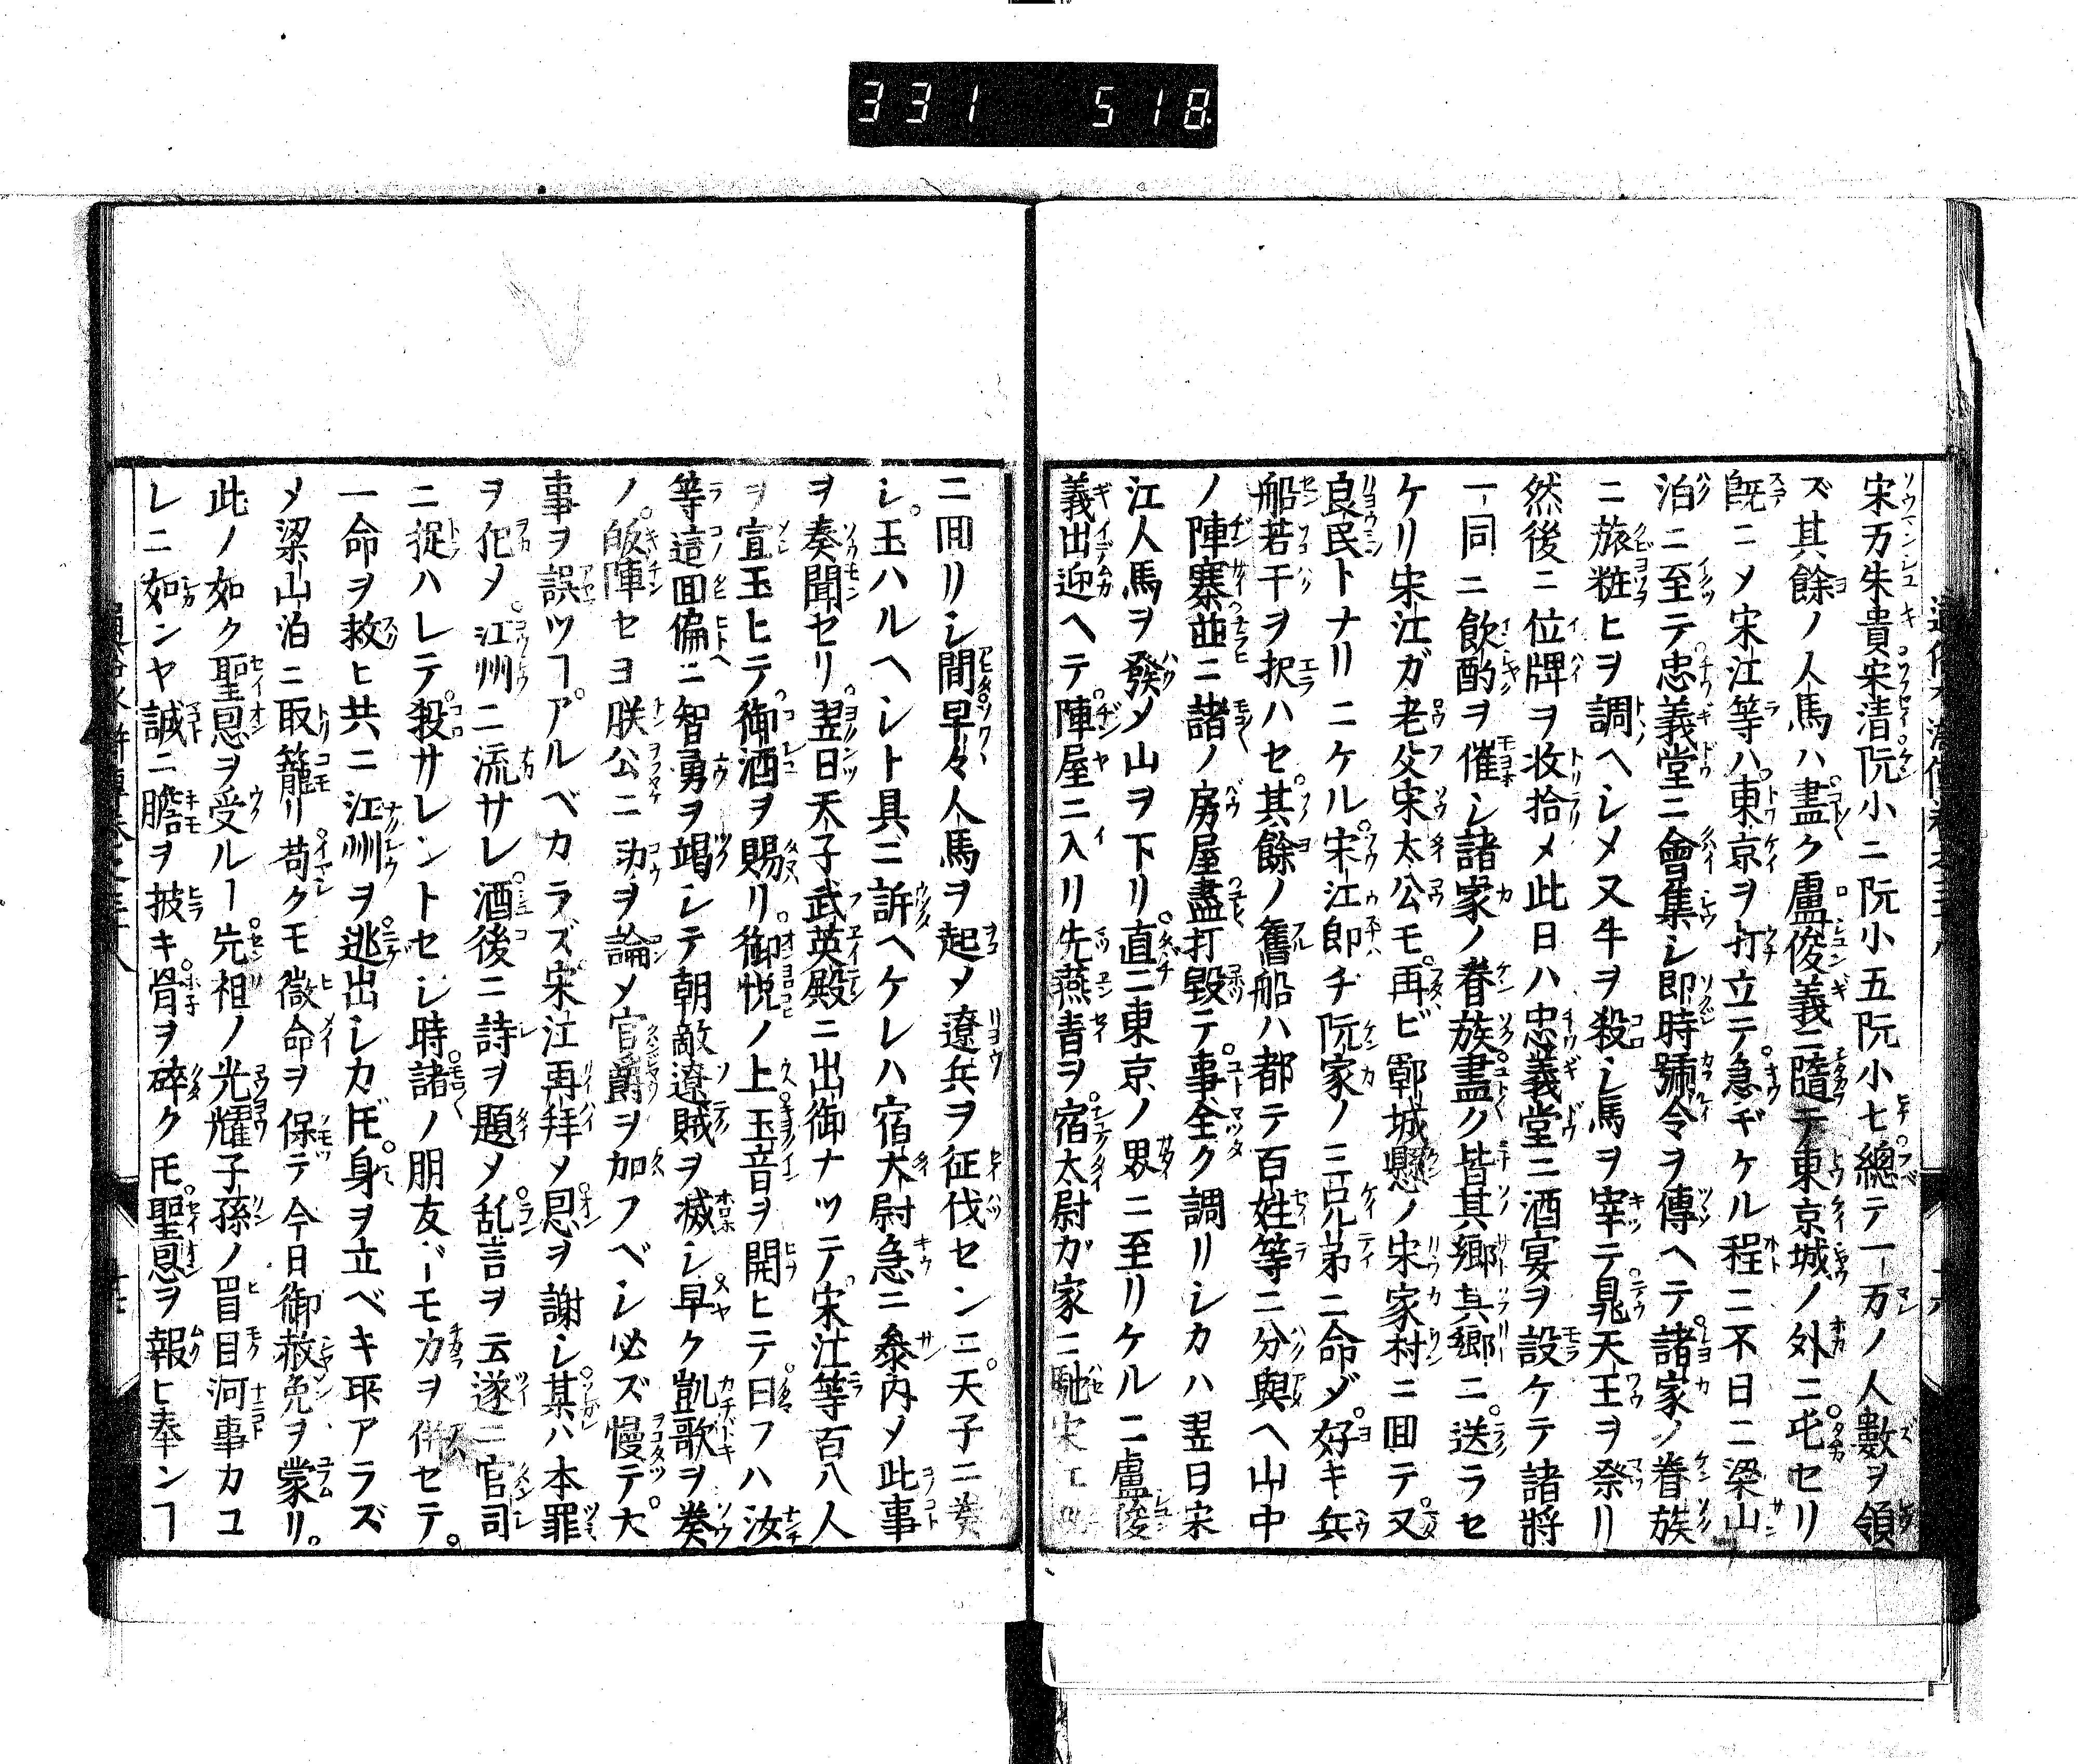 331 518
宋万朱貴宋清阮小二阮小五阮小七總テ一万ノ人數ヲ領
ズ其餘ノ人馬ハ盡ク盧俊義ニ隨テ東京城ノ外ニ屯セリ
既ニメ宋江等ハ東京ヲ打立テ急ギケル程ニ不日ニ梁山
泊ニ至テ忠義堂ニ會集シ即時號令ヲ傳ヘテ諸家ノ眷族
ニ旅粧ヒヲ調ヘシメ又牛ヲ殺シ馬ヲ宰テ晁天王ヲ祭リ
然後ニ位牌ヲ收拾メ此日ハ忠義堂ニ酒宴ヲ設ケテ諸將
一同ニ飲酌ヲ催シ諸家ノ眷族盡ク皆其郷其郷ニ送ラセ
ケリ宋江ガ老父宋太公モ再ビ鄆城懸ノ宋家村ニ囘テ又
良民トナリニケル宋江即チ阮家ノ三兄弟ニ命ジ好キ兵
船若干ヲ択ハセ其餘ノ舊船ハ都テ百姓等ニ分與ヘ山中
ノ陣寨並ニ諸ノ房屋盡打毀テ事全ク調リシカハ翌日宋
江人馬ヲ發メ山ヲ下リ直ニ東京ノ界ニ至リケルニ盧俊
義出迎ヘテ陣屋ニ入リ先燕青ヲ宿太尉ガ家ニ馳
ニ囘リシ間早々人馬ヲ起メ遼兵ヲ征伐センニ天子ニ奏
シ玉ハルヘシト具ニ訴ヘケレハ宿太尉急ニ參内メ此事
ヲ奏聞セリ翌日天子武英殿ニ出御ナツテ宋江等百八人
ヲ宣玉ヒテ御酒ヲ賜リ御悦ノ上玉音ヲ開ヒテ曰フハ汝
等這囘偏ニ智勇ヲ竭シテ朝敵遼賊ヲ滅シ早ク凱歌ヲ奏
ノ皈陣セヨ朕公ニ功ヲ論メ官爵ヲ加フベシ必ズ慢テ大
事ヲ誤ツヿアルベカラズ宋江再拜メ恩ヲ謝シ某ハ本罪
ヲ犯メ江州ニ流サレ酒後ニ詩ヲ題メ乱言ヲ云遂ニ官司
ニ捉ハレテ殺サレントセシ時諸ノ朋友ドモ力ヲ併セテ
一命ヲ救ヒ共ニ江州ヲ逃出シカ𪜈身ヲ立ベキ所アラズ
メ梁山泊ニ取籠リ苟クモ微命ヲ保テ今日御赦免ヲ蒙リ
此ノ如ク聖恩ヲ受ルヿ先祖ノ光耀子孫ノ眉目河事カコ
レニ如ンヤ誠ニ膽ヲ披キ骨ヲ碎ク𪜈聖恩ヲ報ヒ奉ンヿ